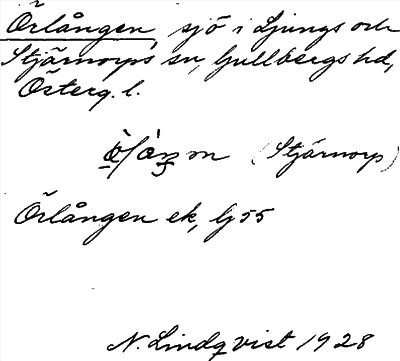 Örlången, sjö i Ljungs och
Stjärnorps sn, Gullbergs hd,
Österg. l.
(Stjärnorp)
Örlången ek, G 55
N. Lindqvist 1928